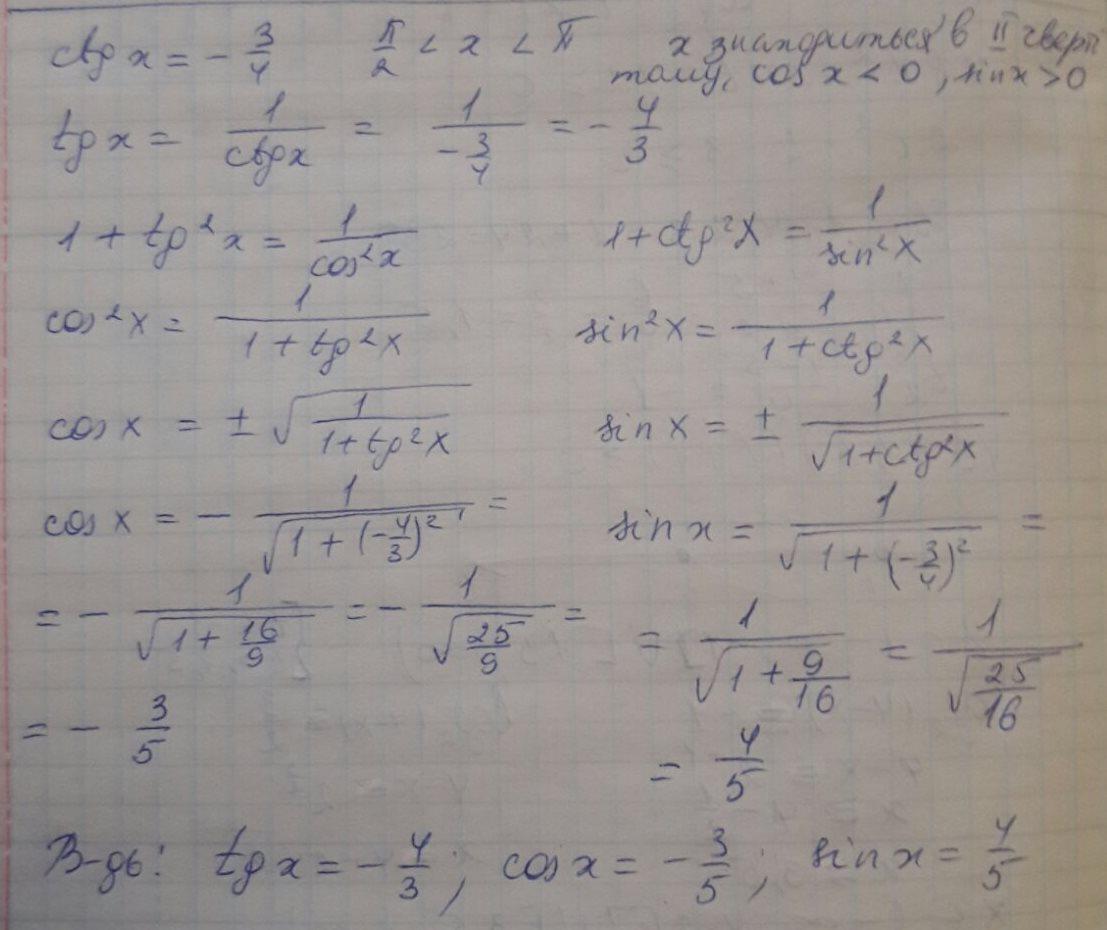 ctg x = - 3/4   π/2 < x < π   x знаходиться в II чверті
тому, cos x < 0, sin x > 0
tg x = 1/ctg x = 1/(-3/4) = - 4/3
1 + tg²x = 1/cos²x   1 + ctg²x = 1/sin²x
cos²x = 1/(1 + tg²x)   sin²x = 1/(1 + ctg²x)
cos x = ± √(1/(1 + tg²x))   sin x = ± 1/√(1 + ctg²x)
cos x = - 1/√(1 + (-4/3)²) =   sin x = 1/√(1 + (-3/4)²) =
= - 1/√(1 + 16/9) = - 1/√(25/9) =   = 1/√(1 + 9/16) = 1/√(25/16)
= - 3/5   = 4/5
В-дь: tg x = - 4/3; cos x = - 3/5; sin x = 4/5